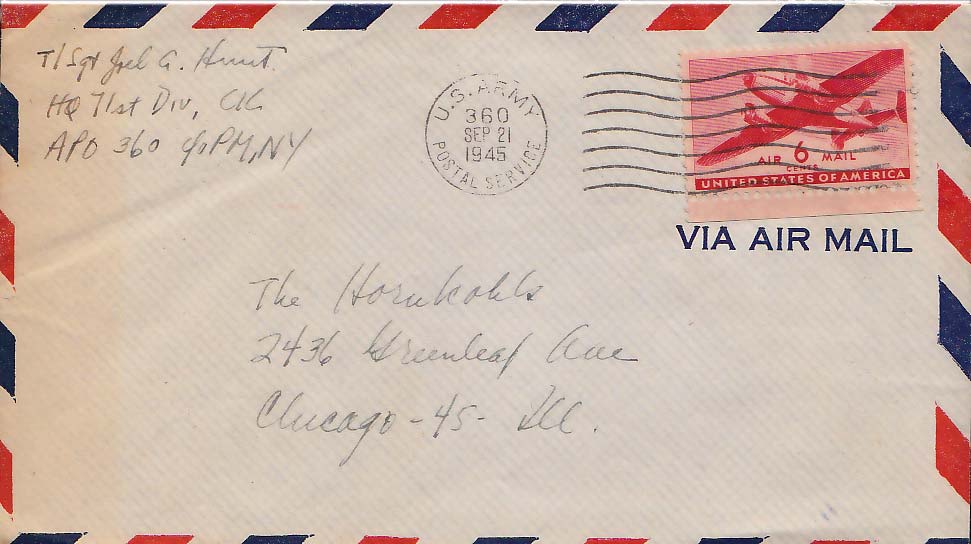 T/Sgt Joel A. Hunt
HQ 71st Div, CIC
APO 360 c/o PM, NY
U.S. ARMY
360
SEP 21
1945
POSTAL SERVICE
AIR 6 MAIL
CENTS
UNITED STATES OF AMERICA
VIA AIR MAIL
The Hornkohls
2436 Greenleaf Ave
Chicago - 45 - Ill.